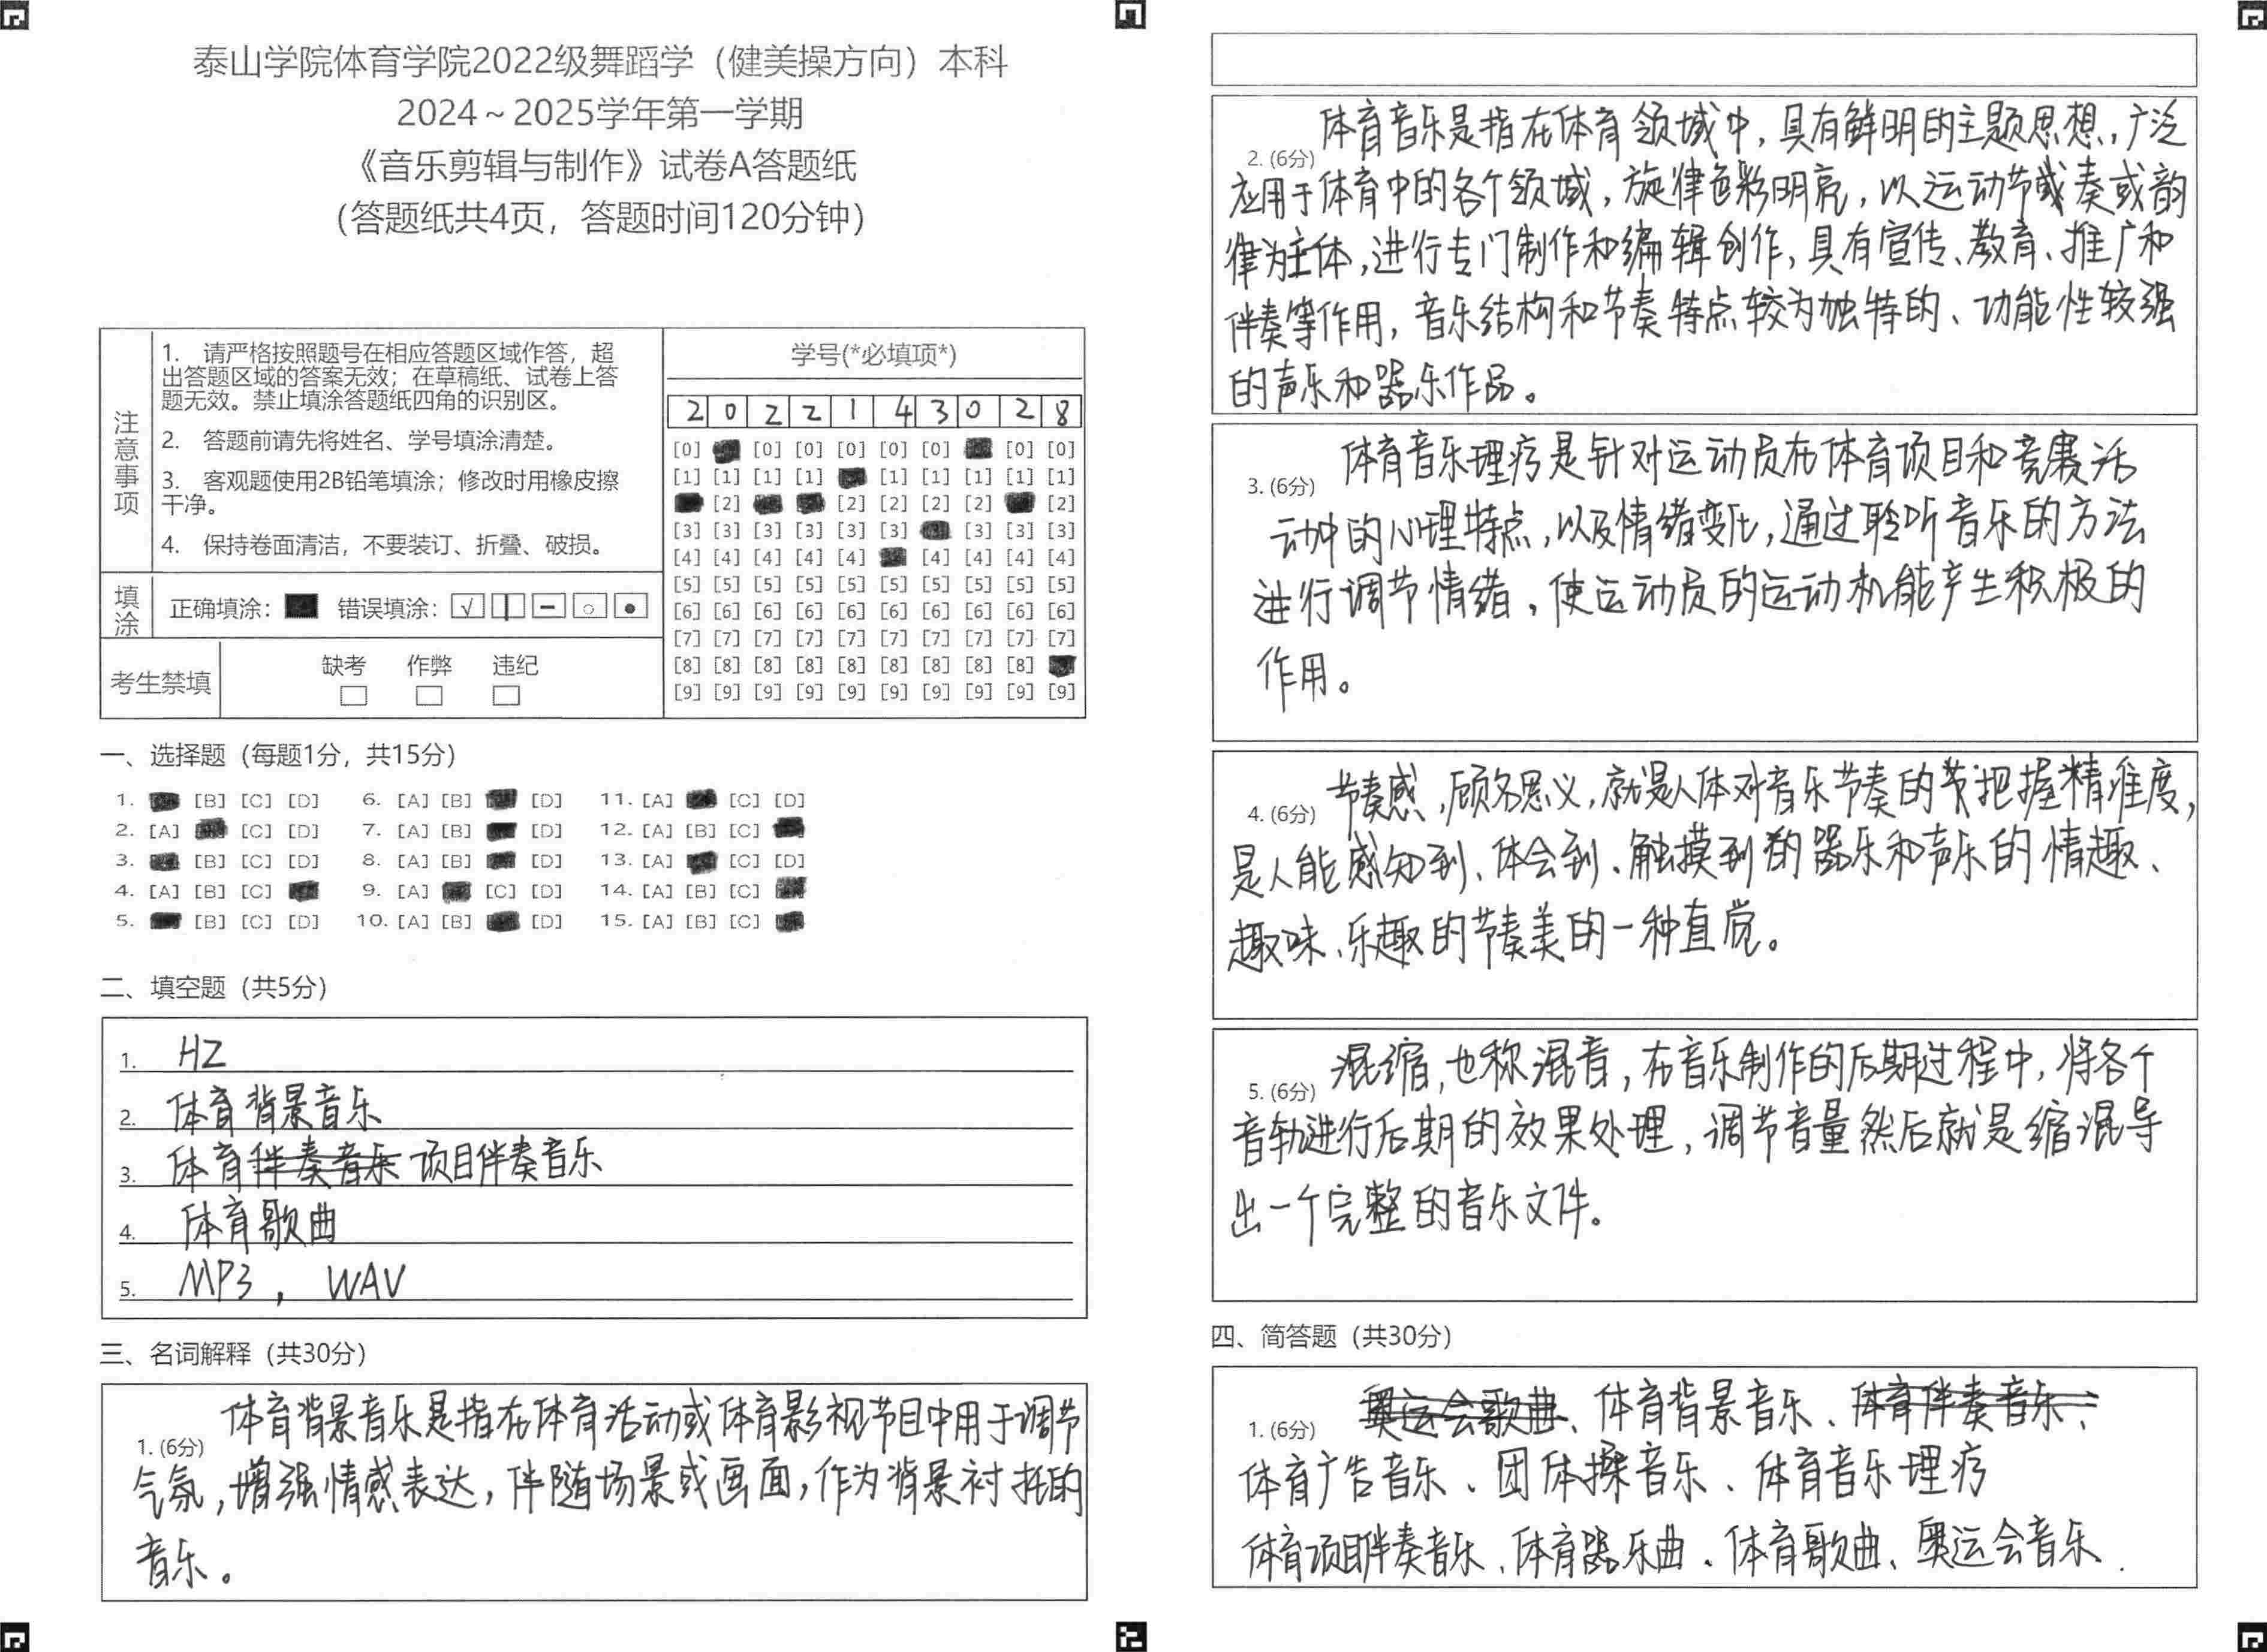 泰山学院体育学院2022级舞蹈学（健美操方向）本科
2024～2025学年第一学期
《音乐剪辑与制作》试卷A答题纸
（答题纸共4页，答题时间120分钟）
注意事项
1. 请严格按照题号在相应答题区域作答，超
出答题区域的答案无效；在草稿纸、试卷上答
题无效。禁止填涂答题纸四角的识别区。
2. 答题前请先将姓名、学号填涂清楚。
3. 客观题使用2B铅笔填涂；修改时用橡皮擦
干净。
4. 保持卷面清洁，不要装订、折叠、破损。
填涂 正确填涂： 错误填涂：
考生禁填 缺考 作弊 违纪
学号(*必填项*)
2 0 2 2 1 4 3 0 2 8
[0] [0] [0] [0] [0] [0] [0] [0]
[1] [1] [1] [1] [1] [1] [1] [1] [1]
[2] [2] [2] [2] [2] [2]
[3] [3] [3] [3] [3] [3] [3] [3] [3]
[4] [4] [4] [4] [4] [4] [4] [4] [4]
[5] [5] [5] [5] [5] [5] [5] [5] [5] [5]
[6] [6] [6] [6] [6] [6] [6] [6] [6] [6]
[7] [7] [7] [7] [7] [7] [7] [7] [7] [7]
[8] [8] [8] [8] [8] [8] [8] [8] [8]
[9] [9] [9] [9] [9] [9] [9] [9] [9] [9]
一、选择题（每题1分，共15分）
1. [B] [C] [D] 6. [A] [B] [D] 11. [A] [C] [D]
2. [A] [C] [D] 7. [A] [B] [D] 12. [A] [B] [C]
3. [B] [C] [D] 8. [A] [B] [D] 13. [A] [C] [D]
4. [A] [B] [C] 9. [A] [C] [D] 14. [A] [B] [C]
5. [B] [C] [D] 10. [A] [B] [D] 15. [A] [B] [C]
二、填空题（共5分）
1. HZ
2. 体育背景音乐
3. 体育伴奏音乐 项目伴奏音乐
4. 体育歌曲
5. MP3， WAV
三、名词解释（共30分）
体育背景音乐是指在体育活动或体育影视节目中用于调节
1. (6分)
气氛，增强情感表达，伴随场景或画面，作为背景衬托的
音乐。
体育音乐是指在体育领域中，具有鲜明的主题思想，广泛
2. (6分)
应用于体育中的各个领域，旋律色彩明亮，以运动节或奏或韵
律为主体，进行专门制作和编辑创作，具有宣传、教育、推广和
伴奏等作用，音乐结构和节奏特点较为独特的、功能性较强
的声乐和器乐作品。
体育音乐理疗是针对运动员在体育项目和竞赛活
3. (6分)
动中的心理特点，以及情绪变化，通过聆听音乐的方法
进行调节情绪，使运动员的运动机能产生积极的
作用。
节奏感，顾名思义，就是人体对音乐节奏的节把握精准度，
4. (6分)
是人能感知到、体会到、触摸到的器乐和声乐的情趣、
趣味、乐趣的节奏美的一种直觉。
混缩，也称混音，在音乐制作的后期过程中，将各个
5. (6分)
音轨进行后期的效果处理，调节音量然后就是缩混导
出一个完整的音乐文件。
四、简答题（共30分）
奥运会歌曲、体育背景音乐、体育伴奏音乐、
1. (6分)
体育广告音乐、团体操音乐、体育音乐理疗
体育项目伴奏音乐、体育器乐曲、体育歌曲、奥运会音乐.